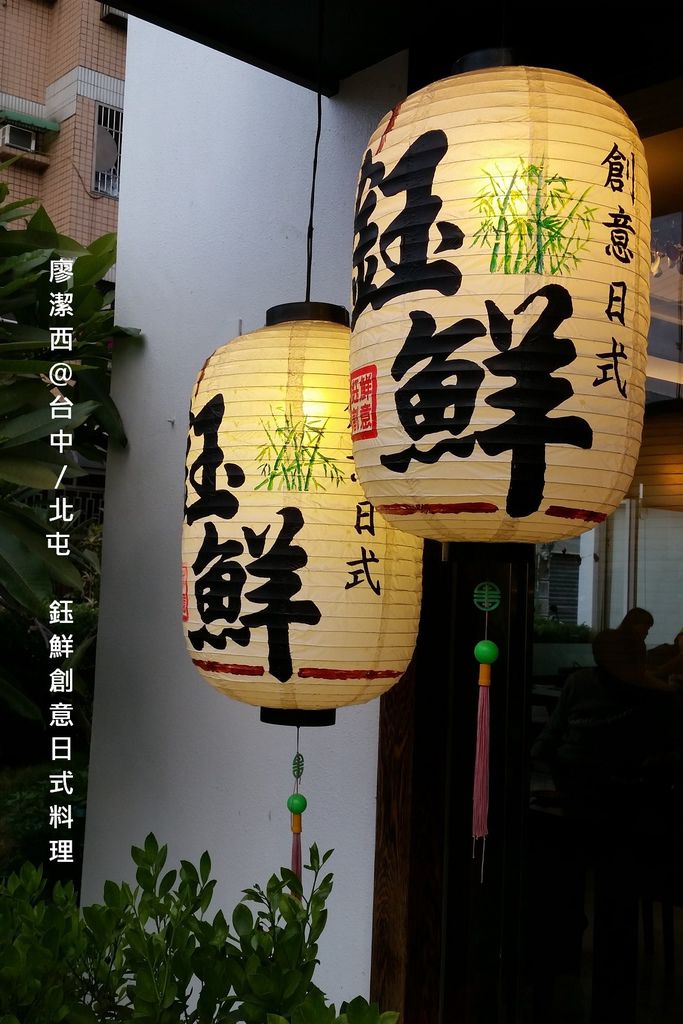 廖潔西@台中/北屯 鈺鮮創意日式料理
創意日式
鈺鮮
鈺鮮
日式